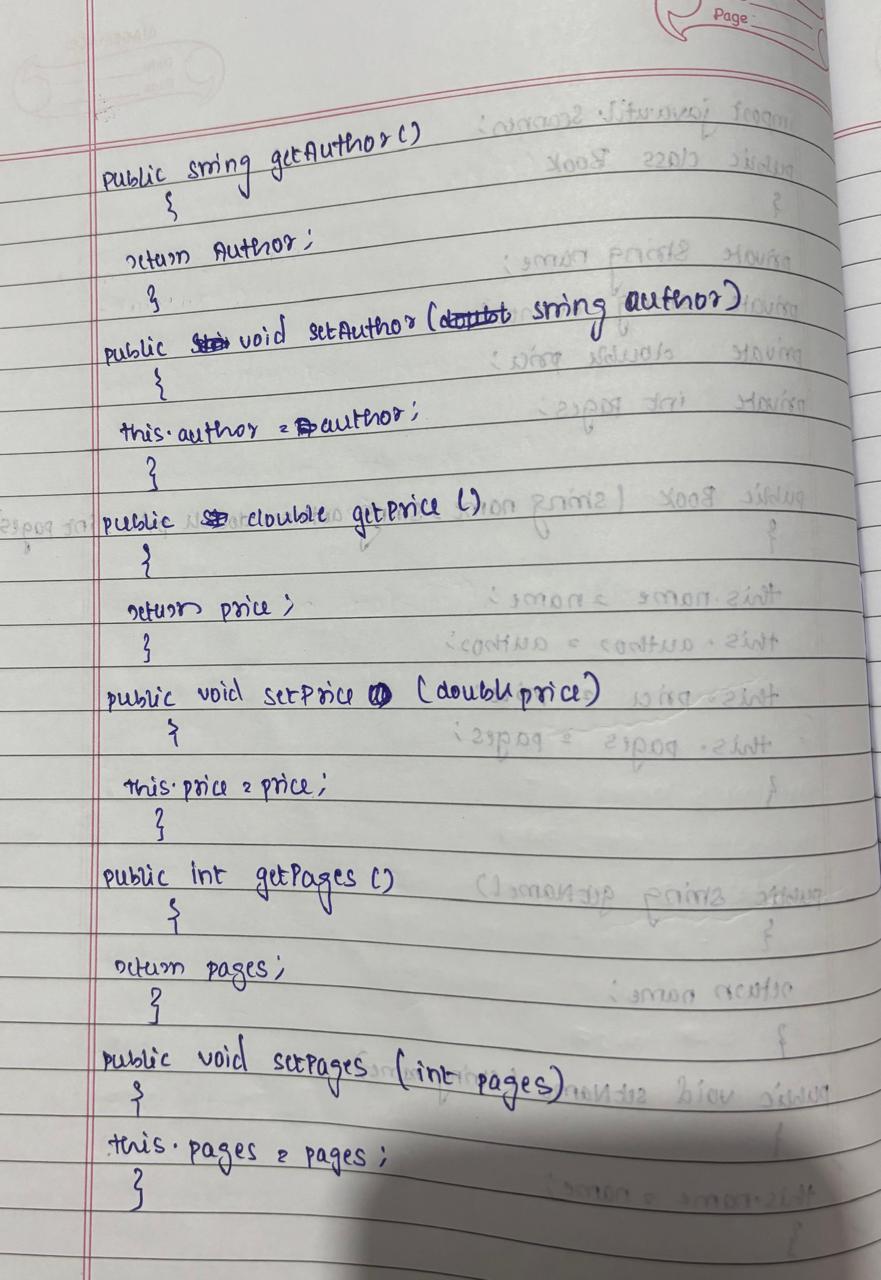 Page
public string getAuthor()
{
return Author;
}
public void setAuthor (string author)
{
this.author = author;
}
public double getPrice ()
{
return price;
}
public void setPrice (double price)
{
this.price = price;
}
public int getPages ()
{
return pages;
}
public void setPages (int pages)
{
this.pages = pages;
}